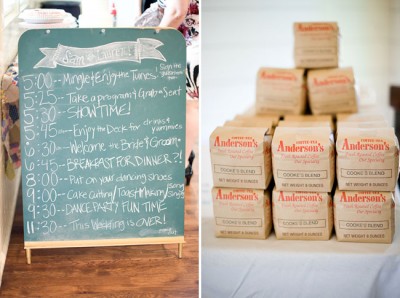 5:00--Mingle & Enjoy the Tunes
5:25--Take a program & Grab a Seat
5:30--SHOWTIME!
5:45--Enjoy the Deck for drinks & yummies
6:30--Welcome the Bride & Groom
6:45--BREAKFAST FOR DINNER?!
8:00--Put on your dancing shoes
9:00--Cake Cutting/Toast Making/
9:30--DANCE PARTY FUN TIME
11:30--This Wedding is OVER!
Anderson's
Anderson's
COFFEE
Anderson's
Anderson's
COOKE'S BLEND
NET WEIGHT 8 OUNCES
COOKE'S BLEND
NET WEIGHT 8 OUNCES
Anderson's
Anderson's
COOKE'S BLEND
NET WEIGHT 8 OUNCES
COOKE'S BLEND
NET WEIGHT 8 OUNCES